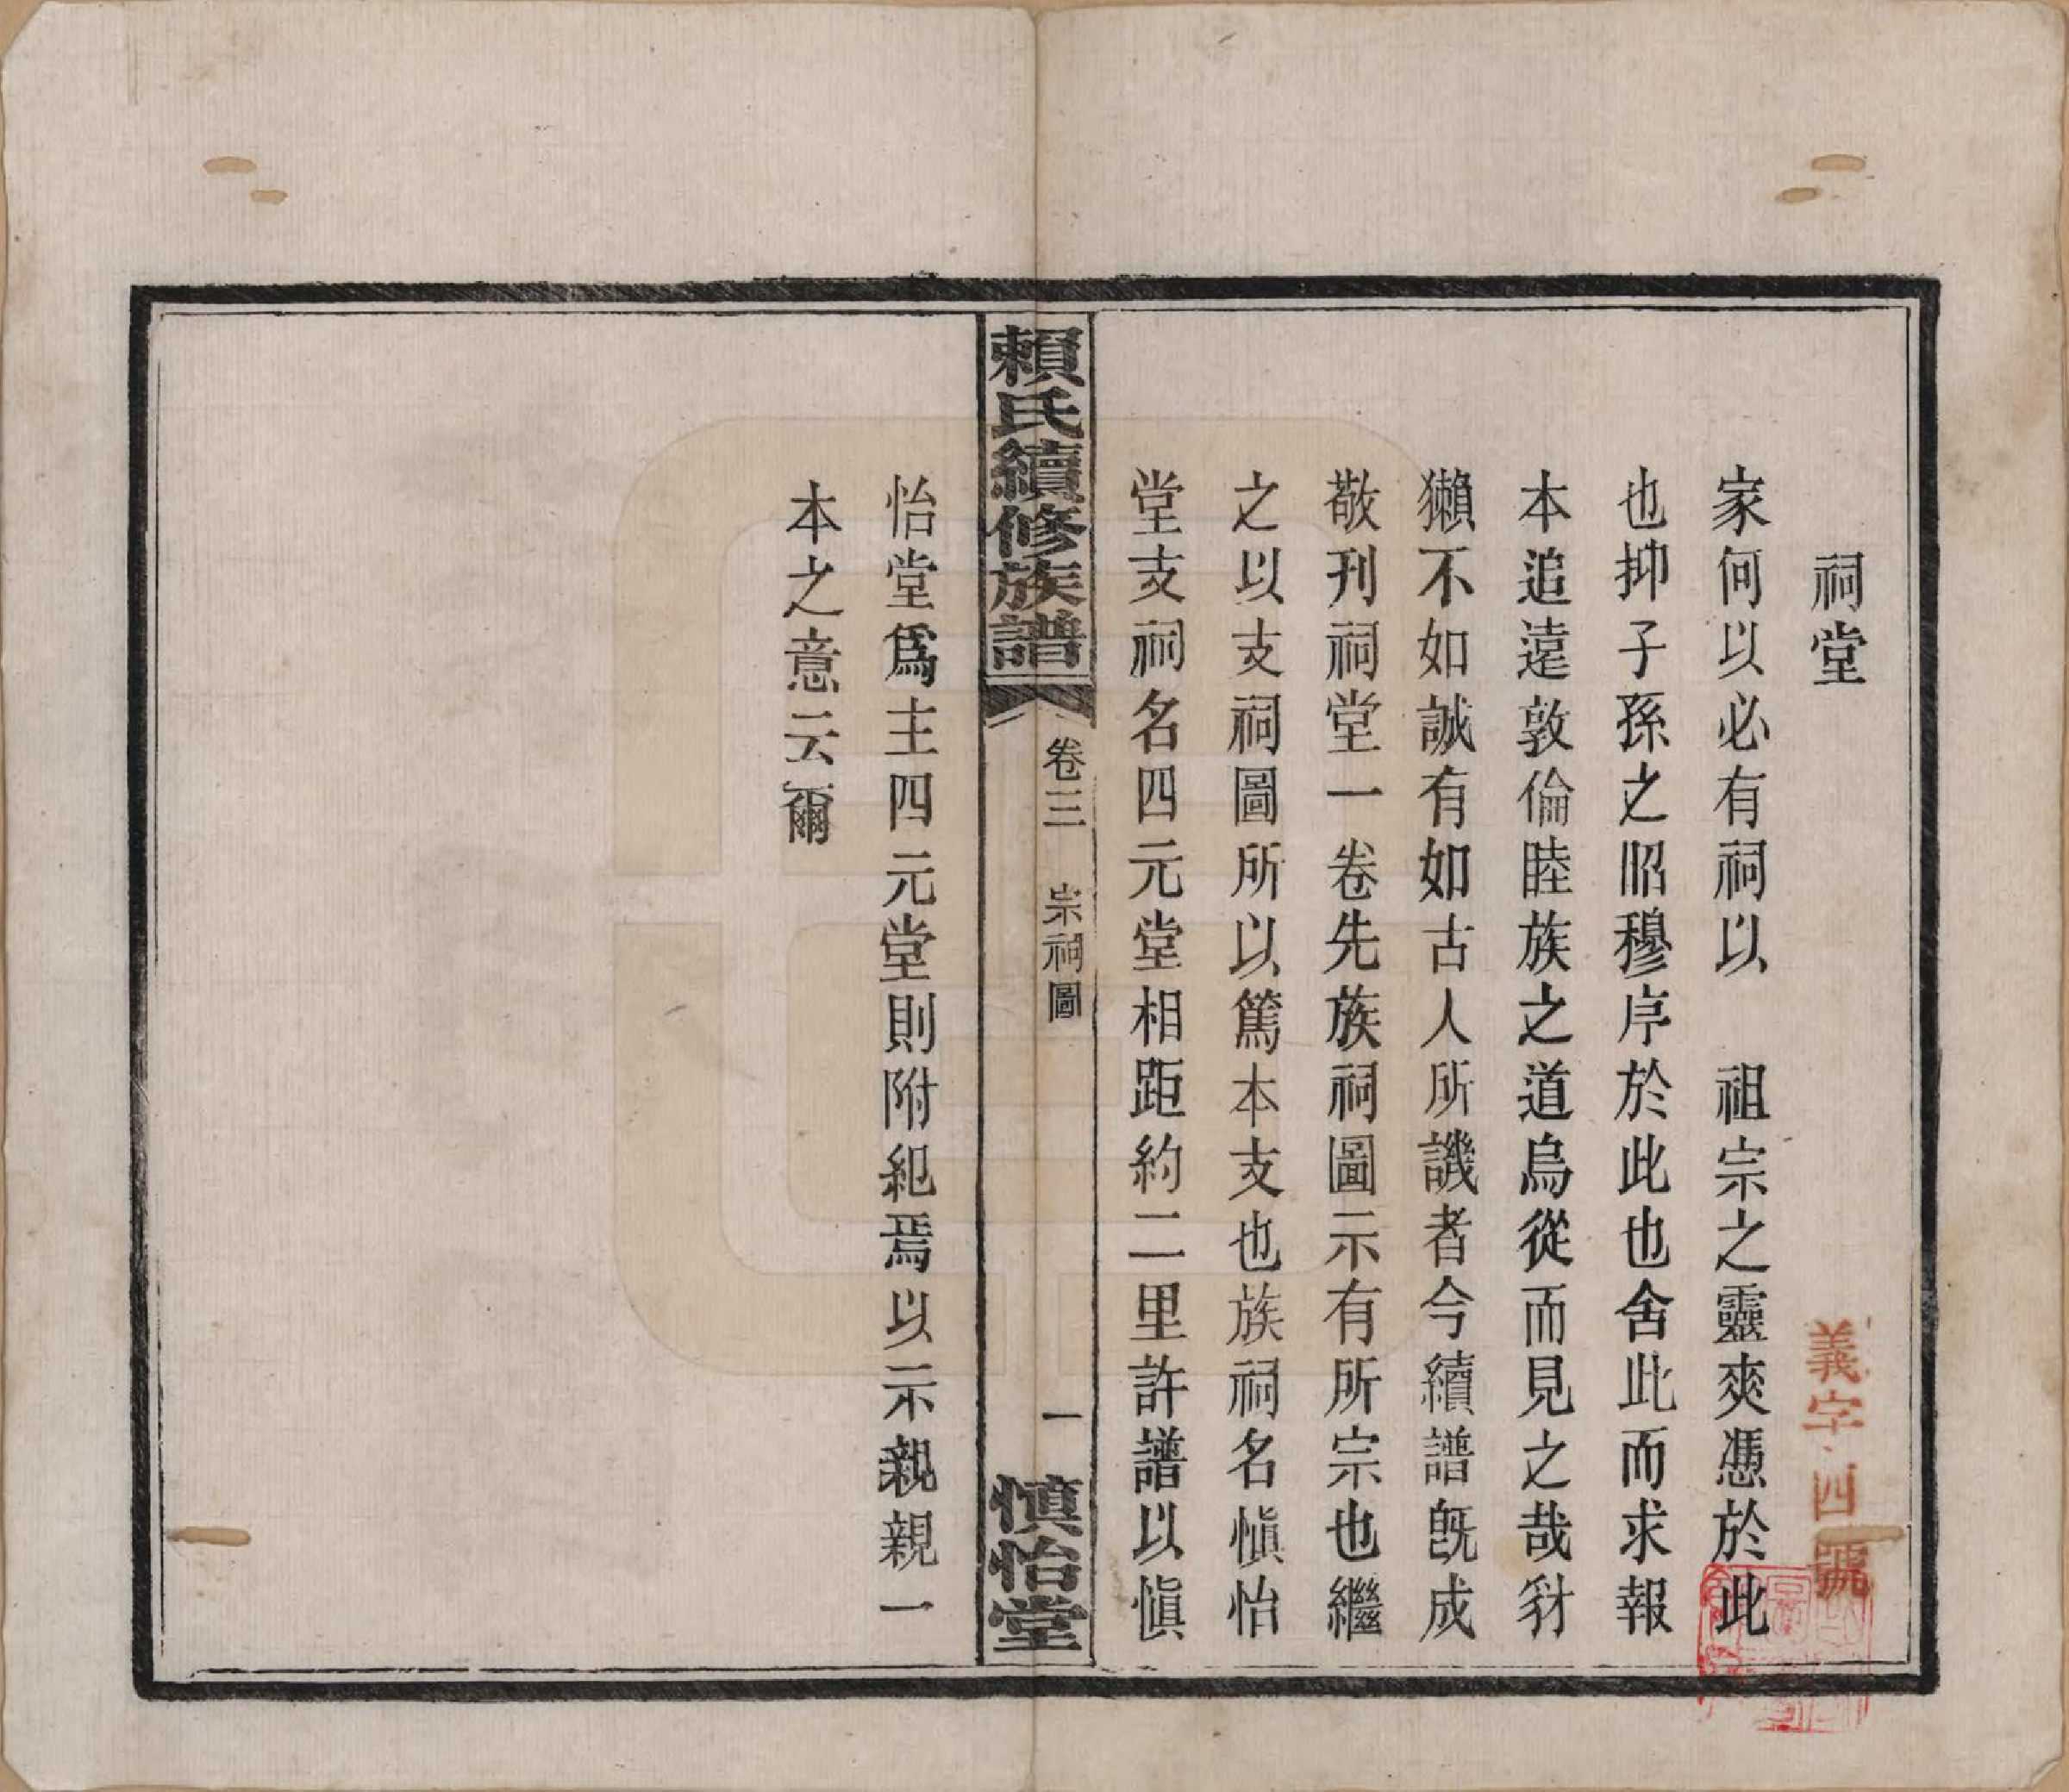 祠堂
家何以必有祠以　祖宗之靈爽憑於此
也抑子孫之昭穆序於此也舍此而求報
本追遠敦倫睦族之道烏從而見之哉豺
獺不如誠有如古人所譏者今續譜旣成
敬刊祠堂一卷先族祠圖示有所宗也繼
之以支祠圖所以篤本支也族祠名愼怡
堂支祠名四元堂相距約二里許譜以愼
怡堂爲主四元堂則附紀焉以示親親一
本之意云爾
賴氏續修族譜
卷三　宗祠圖
一
慎怡堂
義字四號